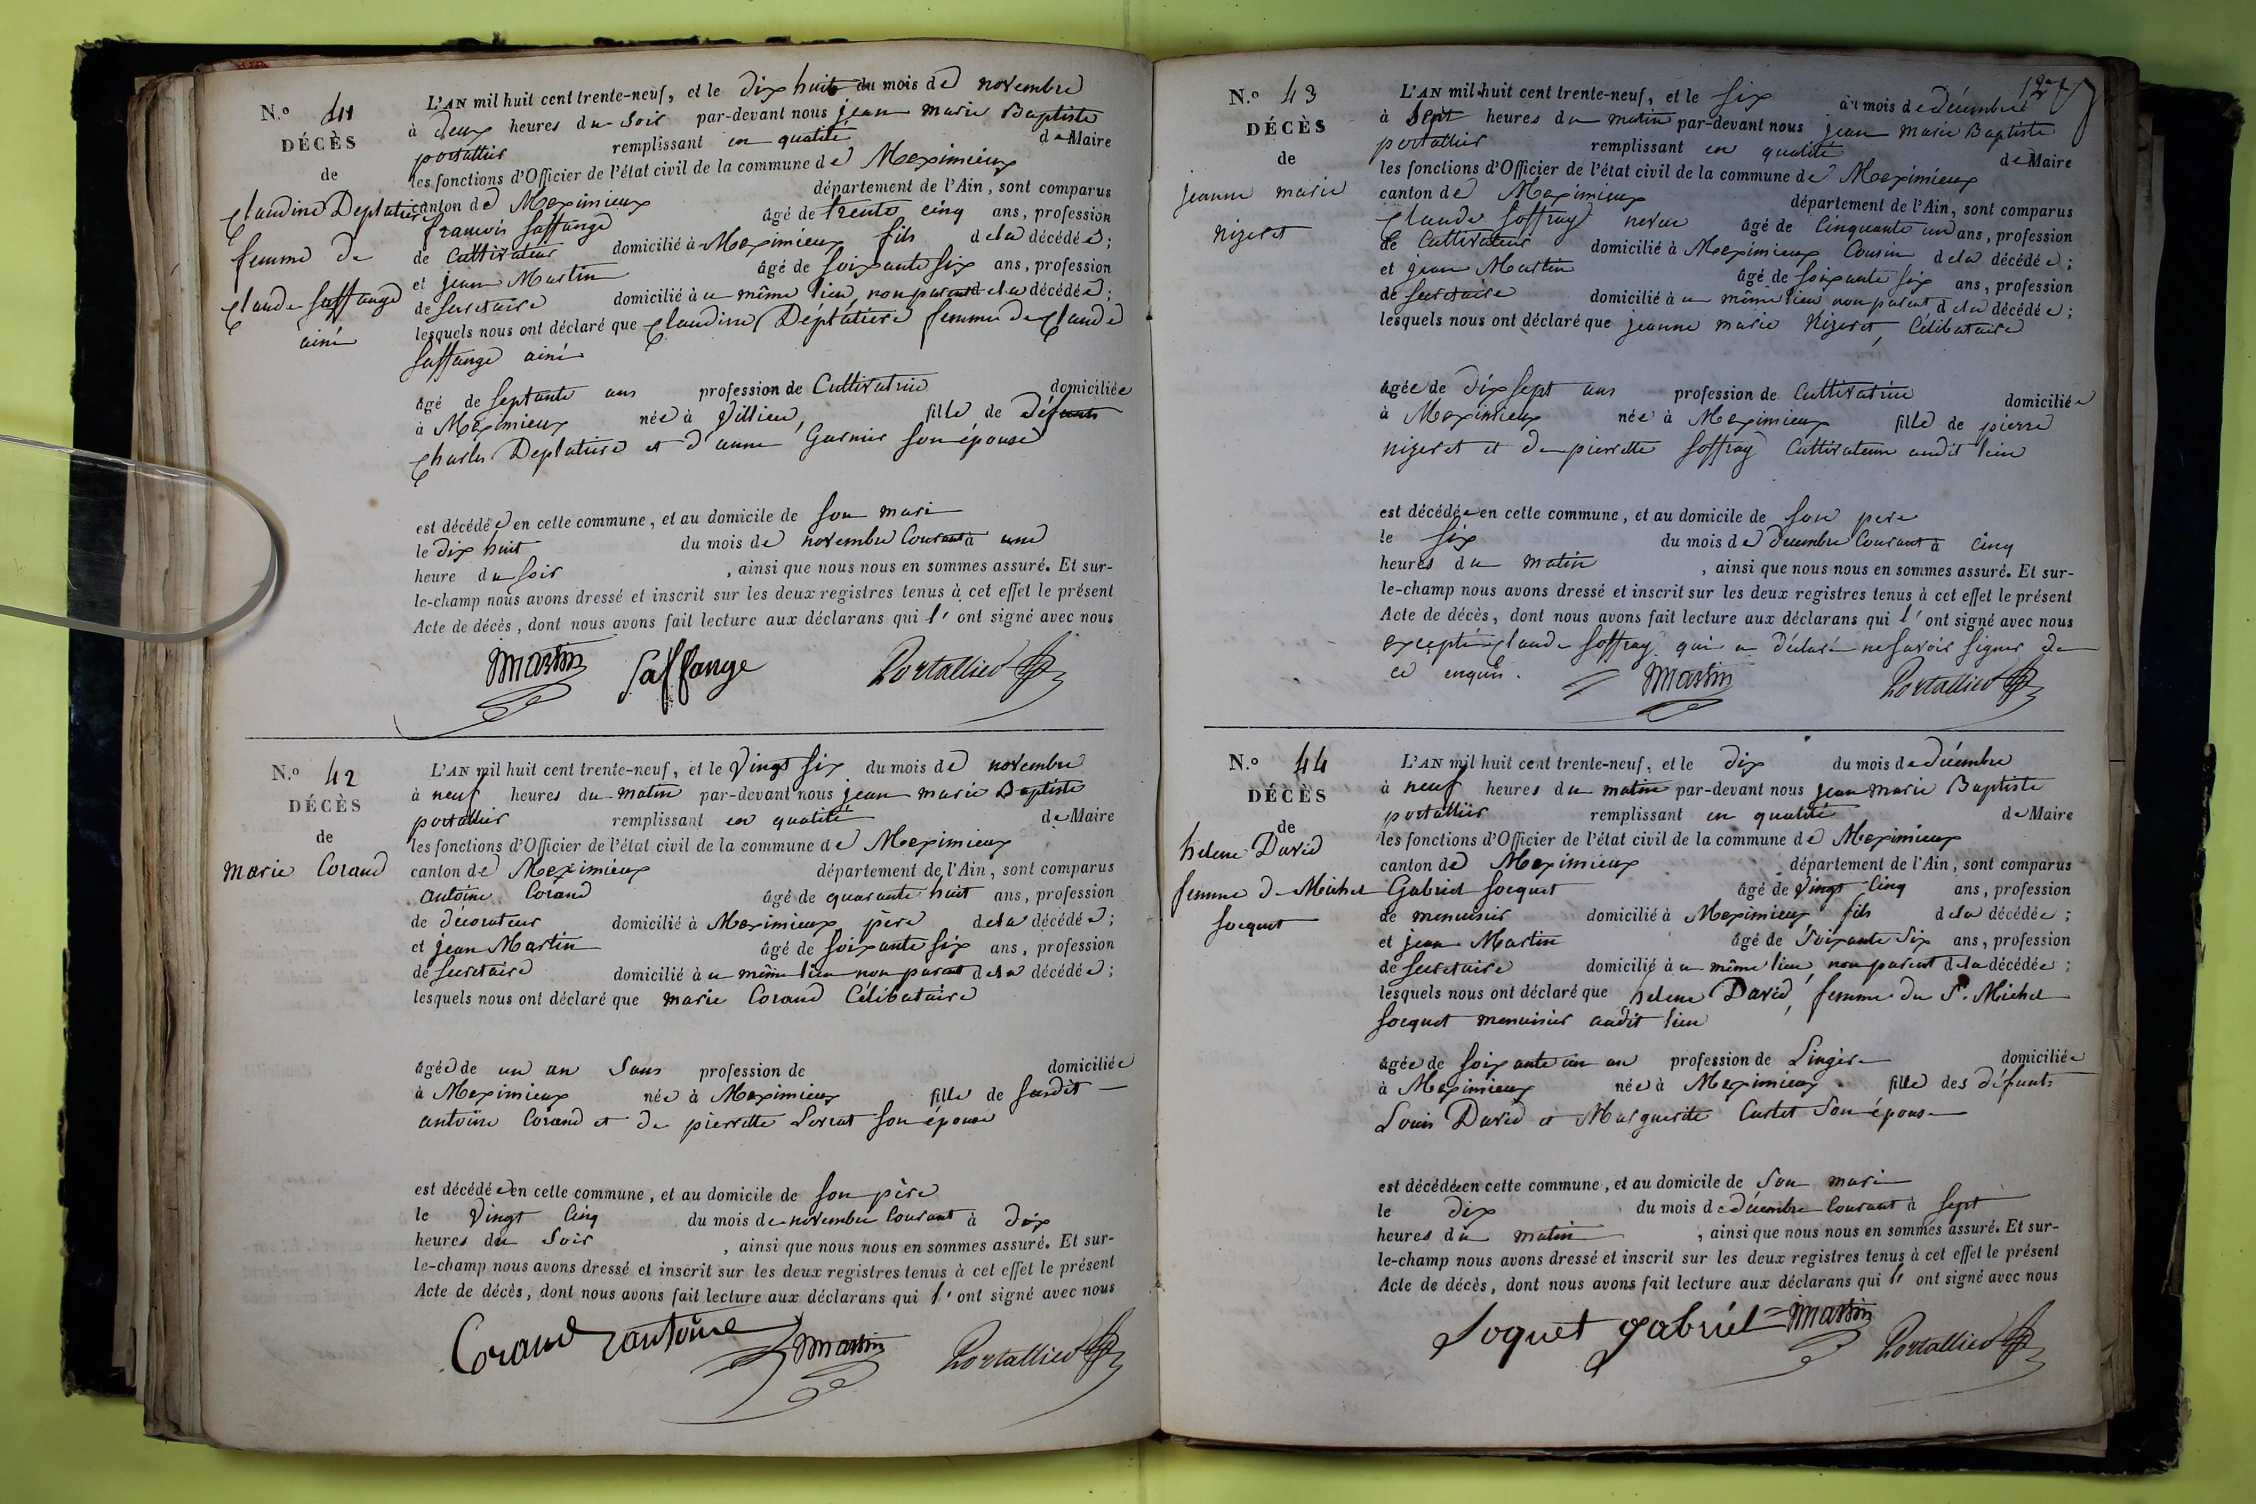 N.o 41
DÉCÈS
de
Claudine Deplatière
femme de
Claude Saffange
ainé
L'AN mil huit cent trente-neuf, et le dix huit du mois de novembre
à deux heures du soir par-devant nous jean marie Baptiste
portallier remplissant en qualité de Maire
les fonctions d'Officier de l'état civil de la commune de Meximieux
canton de Meximieux département de l'Ain, sont comparus
francois Saffange âgé de trente cinq ans, profession
de Cultivateur domicilié à Meximieux fils de la décédée;
et jean Martin âgé de soixante six ans, profession
de Secretaire domicilié à u même lieu, non parent de la décédée;
lesquels nous ont déclaré que Claudine Deplatiere femme de Claude
Saffange ainé
âgé de septante ans profession de Cultivatrice domiciliée
à Meximieux née à Villieu, fille de défunts
Charles Deplatiere et d'anne Garnier son épouse
est décédée en cette commune, et au domicile de son mari
le dix huit du mois de novembre Courant à une
heure du soir, ainsi que nous nous en sommes assuré. Et sur-
le-champ nous avons dressé et inscrit sur les deux registres tenus à cet effet le présent
Acte de décès, dont nous avons fait lecture aux déclarans qui l' ont signé avec nous
Martin Saffange Portallier
N.o 42
DÉCÈS
de
Marie Corand
L'AN mil huit cent trente-neuf, et le Vingt six du mois de novembre
à neuf heures du matin par-devant nous jean marie Baptiste
portallier remplissant en qualité de Maire
les fonctions d'Officier de l'état civil de la commune de Meximieux
canton de Meximieux département de l'Ain, sont comparus
antoine Corand âgé de quarante huit ans, profession
de decorateur domicilié à Meximieux père de la décédée;
et jean Martin âgé de soixante six ans, profession
de secretaire domicilié à u même lieu non parent de la décédée;
lesquels nous ont déclaré que marie Corand Célibataire
âgée de un an Sans profession de domiciliée
à Meximieux née à Meximieux fille de susdit
antoine Corand et de pierrette Lorrat son épouse
est décédée en cette commune, et au domicile de son père
le Vingt Cinq du mois de novembre Courant à dix
heures du Soir, ainsi que nous nous en sommes assuré. Et sur-
le-champ nous avons dressé et inscrit sur les deux registres tenus à cet effet le présent
Acte de décès, dont nous avons fait lecture aux déclarans qui l' ont signé avec nous
Corand antoine Martin Portallier
N.o 43
DÉCÈS
de
jeanne marie
nizeret
L'AN mil huit cent trente-neuf, et le six du mois de décembre
à Sept heures du matin par-devant nous jean marie Baptiste
portallier remplissant en qualité de Maire
les fonctions d'Officier de l'état civil de la commune de Meximieux
canton de Meximieux département de l'Ain, sont comparus
Claude Soffray neveu âgé de Cinquante un ans, profession
de Cultivateur domicilié à Meximieux Cousin de la décédée;
et jean Martin âgé de soixante six ans, profession
de Secretaire domicilié à u même lieu non parent de la décédée;
lesquels nous ont déclaré que jeanne marie Nizeret, Célibataire
âgée de dix sept ans profession de Cultivatrice domiciliée
à Meximieux née à Meximieux fille de pierre
nizeret et de pierrette Soffray Cultivateurs audit lieu
est décédée en cette commune, et au domicile de son pere
le six du mois de décembre Courant à Cinq
heures du matin, ainsi que nous nous en sommes assuré. Et sur-
le-champ nous avons dressé et inscrit sur les deux registres tenus à cet effet le présent
Acte de décès, dont nous avons fait lecture aux déclarans qui l' ont signé avec nous
excepté Claude Soffray qui a déclaré ne savoir signer de
ce enquis. Martin Portallier
N.o 44
DÉCÈS
de
helene David
femme de Michel
Socquet
L'AN mil huit cent trente-neuf, et le dix du mois de décembre
à neuf heures du matin par-devant nous jean marie Baptiste
portallier remplissant en qualité de Maire
les fonctions d'Officier de l'état civil de la commune de Meximieux
canton de Meximieux département de l'Ain, sont comparus
Gabriel Socquet âgé de Vingt Cinq ans, profession
de menuisier domicilié à Meximieux fils de la décédée;
et jean Martin âgé de Soixante Six ans, profession
de Secretaire domicilié à u même lieu, non parent de la décédée;
lesquels nous ont déclaré que helene David, femme du Sr. Michel
Socquet menuisier audit lieu
âgée de soixante un an profession de Lingère domiciliée
à Meximieux née à Meximieux. fille des défunts
Louis David et Marguerite Curtet Son épouse
est décédée en cette commune, et au domicile de Son mari
le dix du mois de décembre Courant à Sept
heures du matin, ainsi que nous nous en sommes assuré. Et sur-
le-champ nous avons dressé et inscrit sur les deux registres tenus à cet effet le présent
Acte de décès, dont nous avons fait lecture aux déclarans qui l' ont signé avec nous
Soquet gabriel Martin Portallier